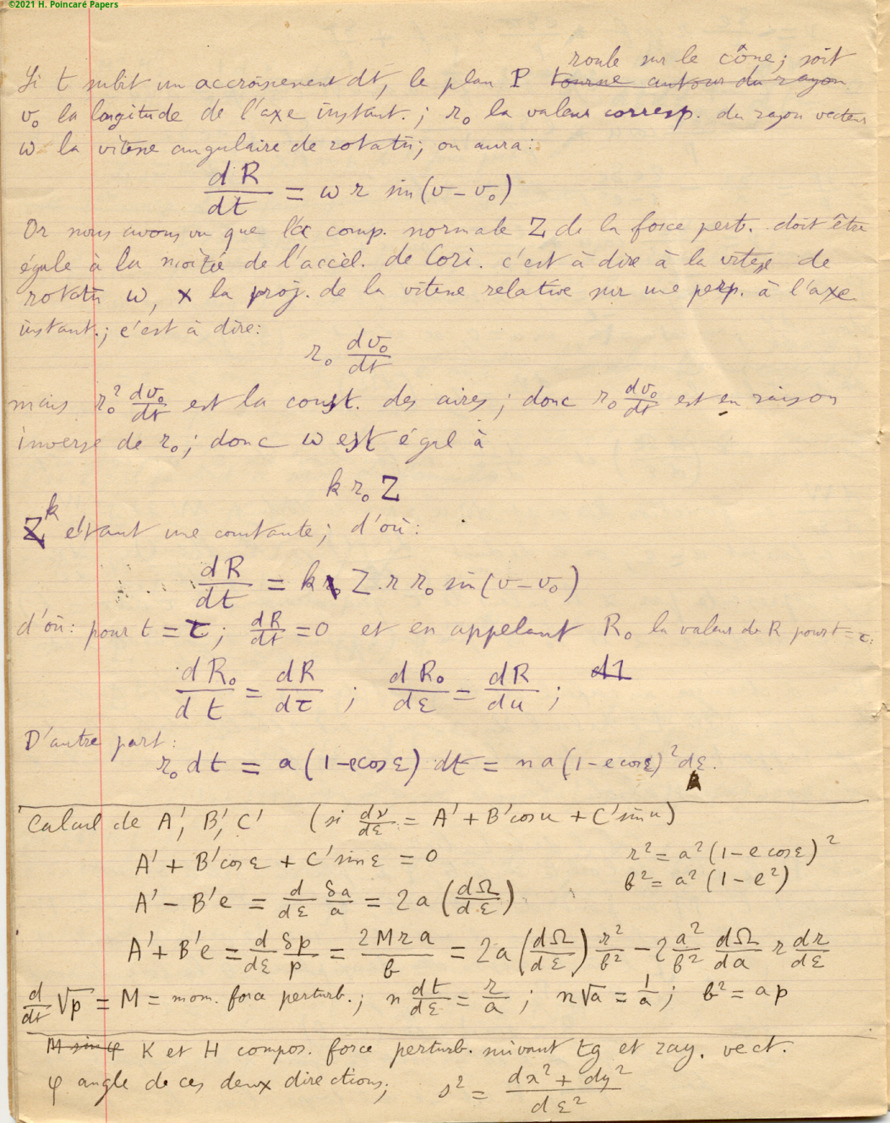 ©2021 H. Poincaré Papers
roule sur le cône; soit
Si t subit un accroissement dt, le plan P tourne autour du rayon
v₀ la longitude de l'axe instant.; r₀ la valeur corresp. du rayon vecteur
ω la vitesse angulaire de rotatn; on aura:
dR/dt = ω r sin(v-v₀)
Or nous avons vu que la comp. normale Z de la force pert. doit être
égale à la moitié de l'accél. de Cori. c'est à dire à la vitesse de
rotatn ω, × la proj. de la vitesse relative sur une perp. à l'axe
instant.; c'est à dire:
r₀ dv₀/dt
mais r₀² dv₀/dt est la const. des aires; donc r₀ dv₀/dt est en raison
inverse de r₀; donc ω est égal à
k r₀ Z
Z k étant une constante; d'où:
dR/dt = k Z. r r₀ sin(v-v₀)
d'où: pour t = τ; dR/dt = 0 et en appelant R₀ la valeur de R pour t = τ.
dR₀/dt = dR/dτ ; dR₀/dε = dR/du ;
D'autre part:
r₀ dt = a(1-e cos ε) dt = na(1-e cos ε)² dε.
Calcul de A', B', C' (si dν/dε = A' + B' cos u + C' sin u)
A' + B' cos ε + C' sin ε = 0 r² = a²(1-e cos ε)²
b² = a²(1-e²)
A' - B'e = d/dε δa/a = 2a (dΩ/dε)
A' + B'e = d/dε δp/p = 2Mra/b = 2a (dΩ/dε) r²/b² - 2 a²/b² dΩ/da r dr/dε
d/dt √p = M = mom. force perturb.; n dt/dε = r/a ; n√a = 1/a ; b² = ap
M sin φ K et H compos. force perturb. suivant tg et ray. vect.
φ angle de ces deux directions; s² = dx² + dy²/dε²